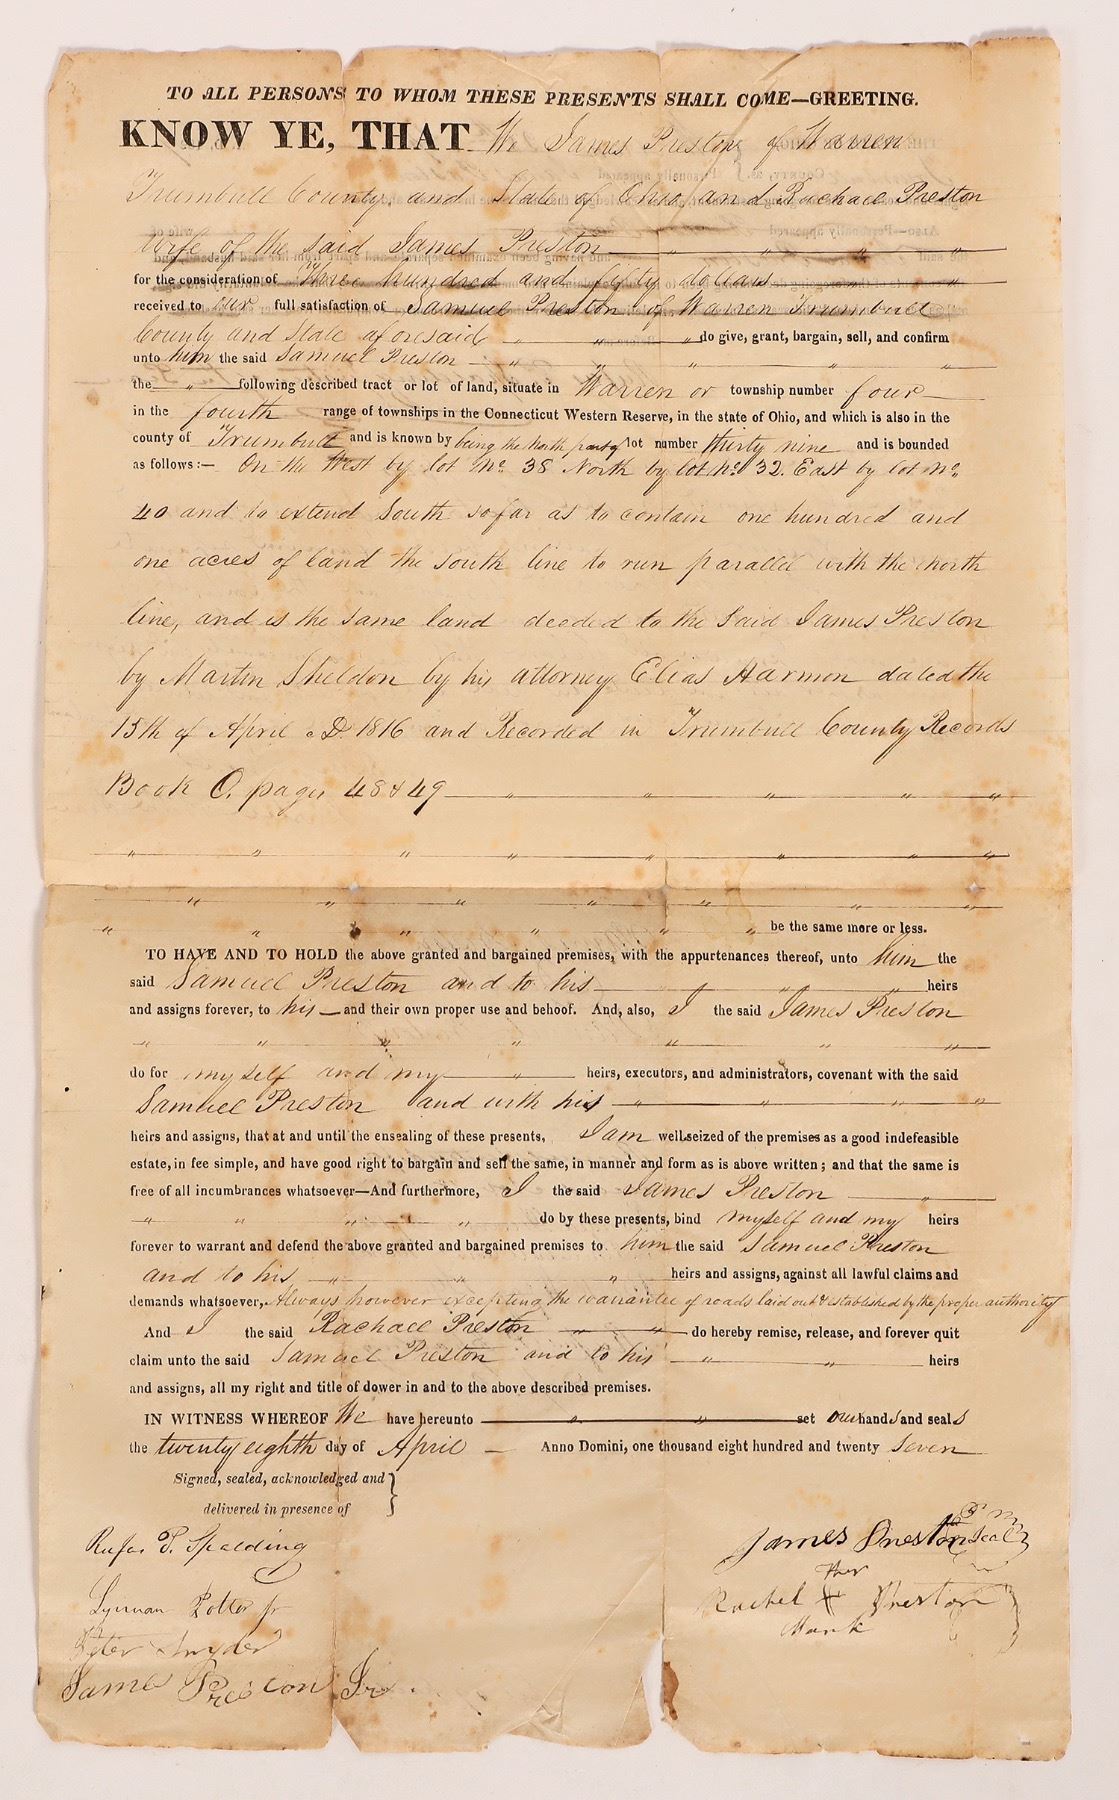 TO ALL PERSONS TO WHOM THESE PRESENTS SHALL COME—GREETING.
KNOW YE, THAT We James Preston of Warren
Trumbull County and State of Ohio and Rachael Preston
wife of the said James Preston
for the consideration of Three hundred and fifty dollars
received to our full satisfaction of Samuel Preston of Warren Trumbull
County and State aforesaid do give, grant, bargain, sell, and confirm
unto him the said Samuel Preston
the following described tract or lot of land, situate in Warren or township number four
in the fourth range of townships in the Connecticut Western Reserve, in the state of Ohio, and which is also in the
county of Trumbull and is known by being the North part of lot number thirty nine and is bounded
as follows:— On the West by lot No. 38 North by lot No. 32. East by lot No.
40 and to extend South so far as to contain one hundred and
one acres of land the south line to run parallel with the North
line, and is the same land deeded to the said James Preston
by Martin Sheldon by his attorney Elias Harmon dated the
15th of April AD. 1816 and Recorded in Trumbull County Records
Book O. pages 48 & 49
be the same more or less.
TO HAVE AND TO HOLD the above granted and bargained premises, with the appurtenances thereof, unto him the
said Samuel Preston and to his heirs
and assigns forever, to his and their own proper use and behoof. And, also, I the said James Preston
do for myself and my heirs, executors, and administrators, covenant with the said
Samuel Preston and with his
heirs and assigns, that at and until the ensealing of these presents, I am well seized of the premises as a good indefeasible
estate, in fee simple, and have good right to bargain and sell the same, in manner and form as is above written; and that the same is
free of all incumbrances whatsoever—And furthermore, I the said James Preston
do by these presents, bind myself and my heirs
forever to warrant and defend the above granted and bargained premises to him the said Samuel Preston
and to his heirs and assigns, against all lawful claims and
demands whatsoever, Always however excepting the warrantee of roads laid out & established by the proper authority
And I the said Rachael Preston do hereby remise, release, and forever quit
claim unto the said Samuel Preston and to his heirs
and assigns, all my right and title of dower in and to the above described premises.
IN WITNESS WHEREOF We have hereunto set our hands and seals
the twenty eighth day of April Anno Domini, one thousand eight hundred and twenty seven
Signed, sealed, acknowledged and
delivered in presence of
Rufus P. Spalding
Lyman Potter jr
Peter Snyder
James Preston Jr.
James Preston Seal
her
Rachel X Preston
Mark